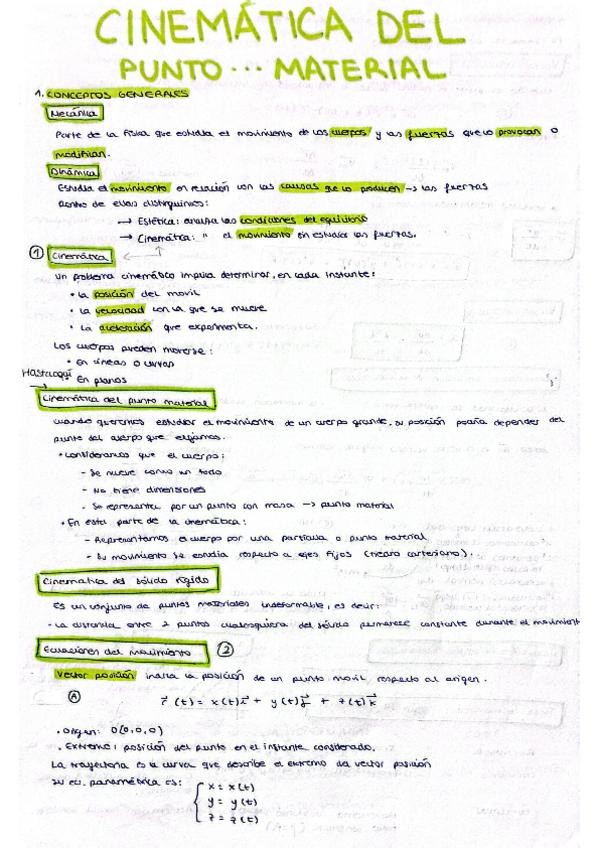 CINEMÁTICA DEL
PUNTO... MATERIAL
1. CONCEPTOS GENERALES
Mecánica
Parte de la física que estudia el movimiento de los cuerpos y las fuerzas que lo provocan o
modifican.
Dinámica
Estudia el movimiento en relación con las causas que lo producen → las fuerzas
Dentro de ellas distinguimos:
→ Estética: analiza las condiciones del equilibrio
→ Cinemática: " el movimiento sin estudiar las fuerzas.
① Cinemática
Un problema cinemático implica determinar, en cada instante:
• La posición del movil
• La velocidad con la que se mueve
• La aceleración que experimenta.
Los cuerpos pueden moverse:
• En líneas o curvas
Hasta aquí • En planos
Cinemática del punto material
Cuando queremos estudiar el movimiento de un cuerpo grande, su posición podría depender del
punto del cuerpo que elijamos.
• Consideramos que el cuerpo:
- Se mueve como un todo
- No tiene dimensiones
- Se representa por un punto con masa → punto material
• En esta parte de la cinemática:
- Representamos el cuerpo por una partícula o punto material
- Su movimiento se estudia respecto a ejes fijos (triedro cartesiano).
Cinemática del sólido rígido
Es un conjunto de puntos materiales indeformable, es decir:
- La distancia entre 2 puntos cualesquiera del sólido permanece constante durante el movimient
Ecuaciones del movimiento ②
Vector posición indica la posición de un punto movil respecto al origen.
Ⓐ r⃗(t) = x(t)i⃗ + y(t)j⃗ + z(t)k⃗
• Origen: O(0,0,0)
• Extremo: posición del punto en el instante considerado.
La trayectoria es la curva que describe el extremo del vector posición
Su ec. paramétrica es: { x = x(t)
y = y(t)
z = z(t)